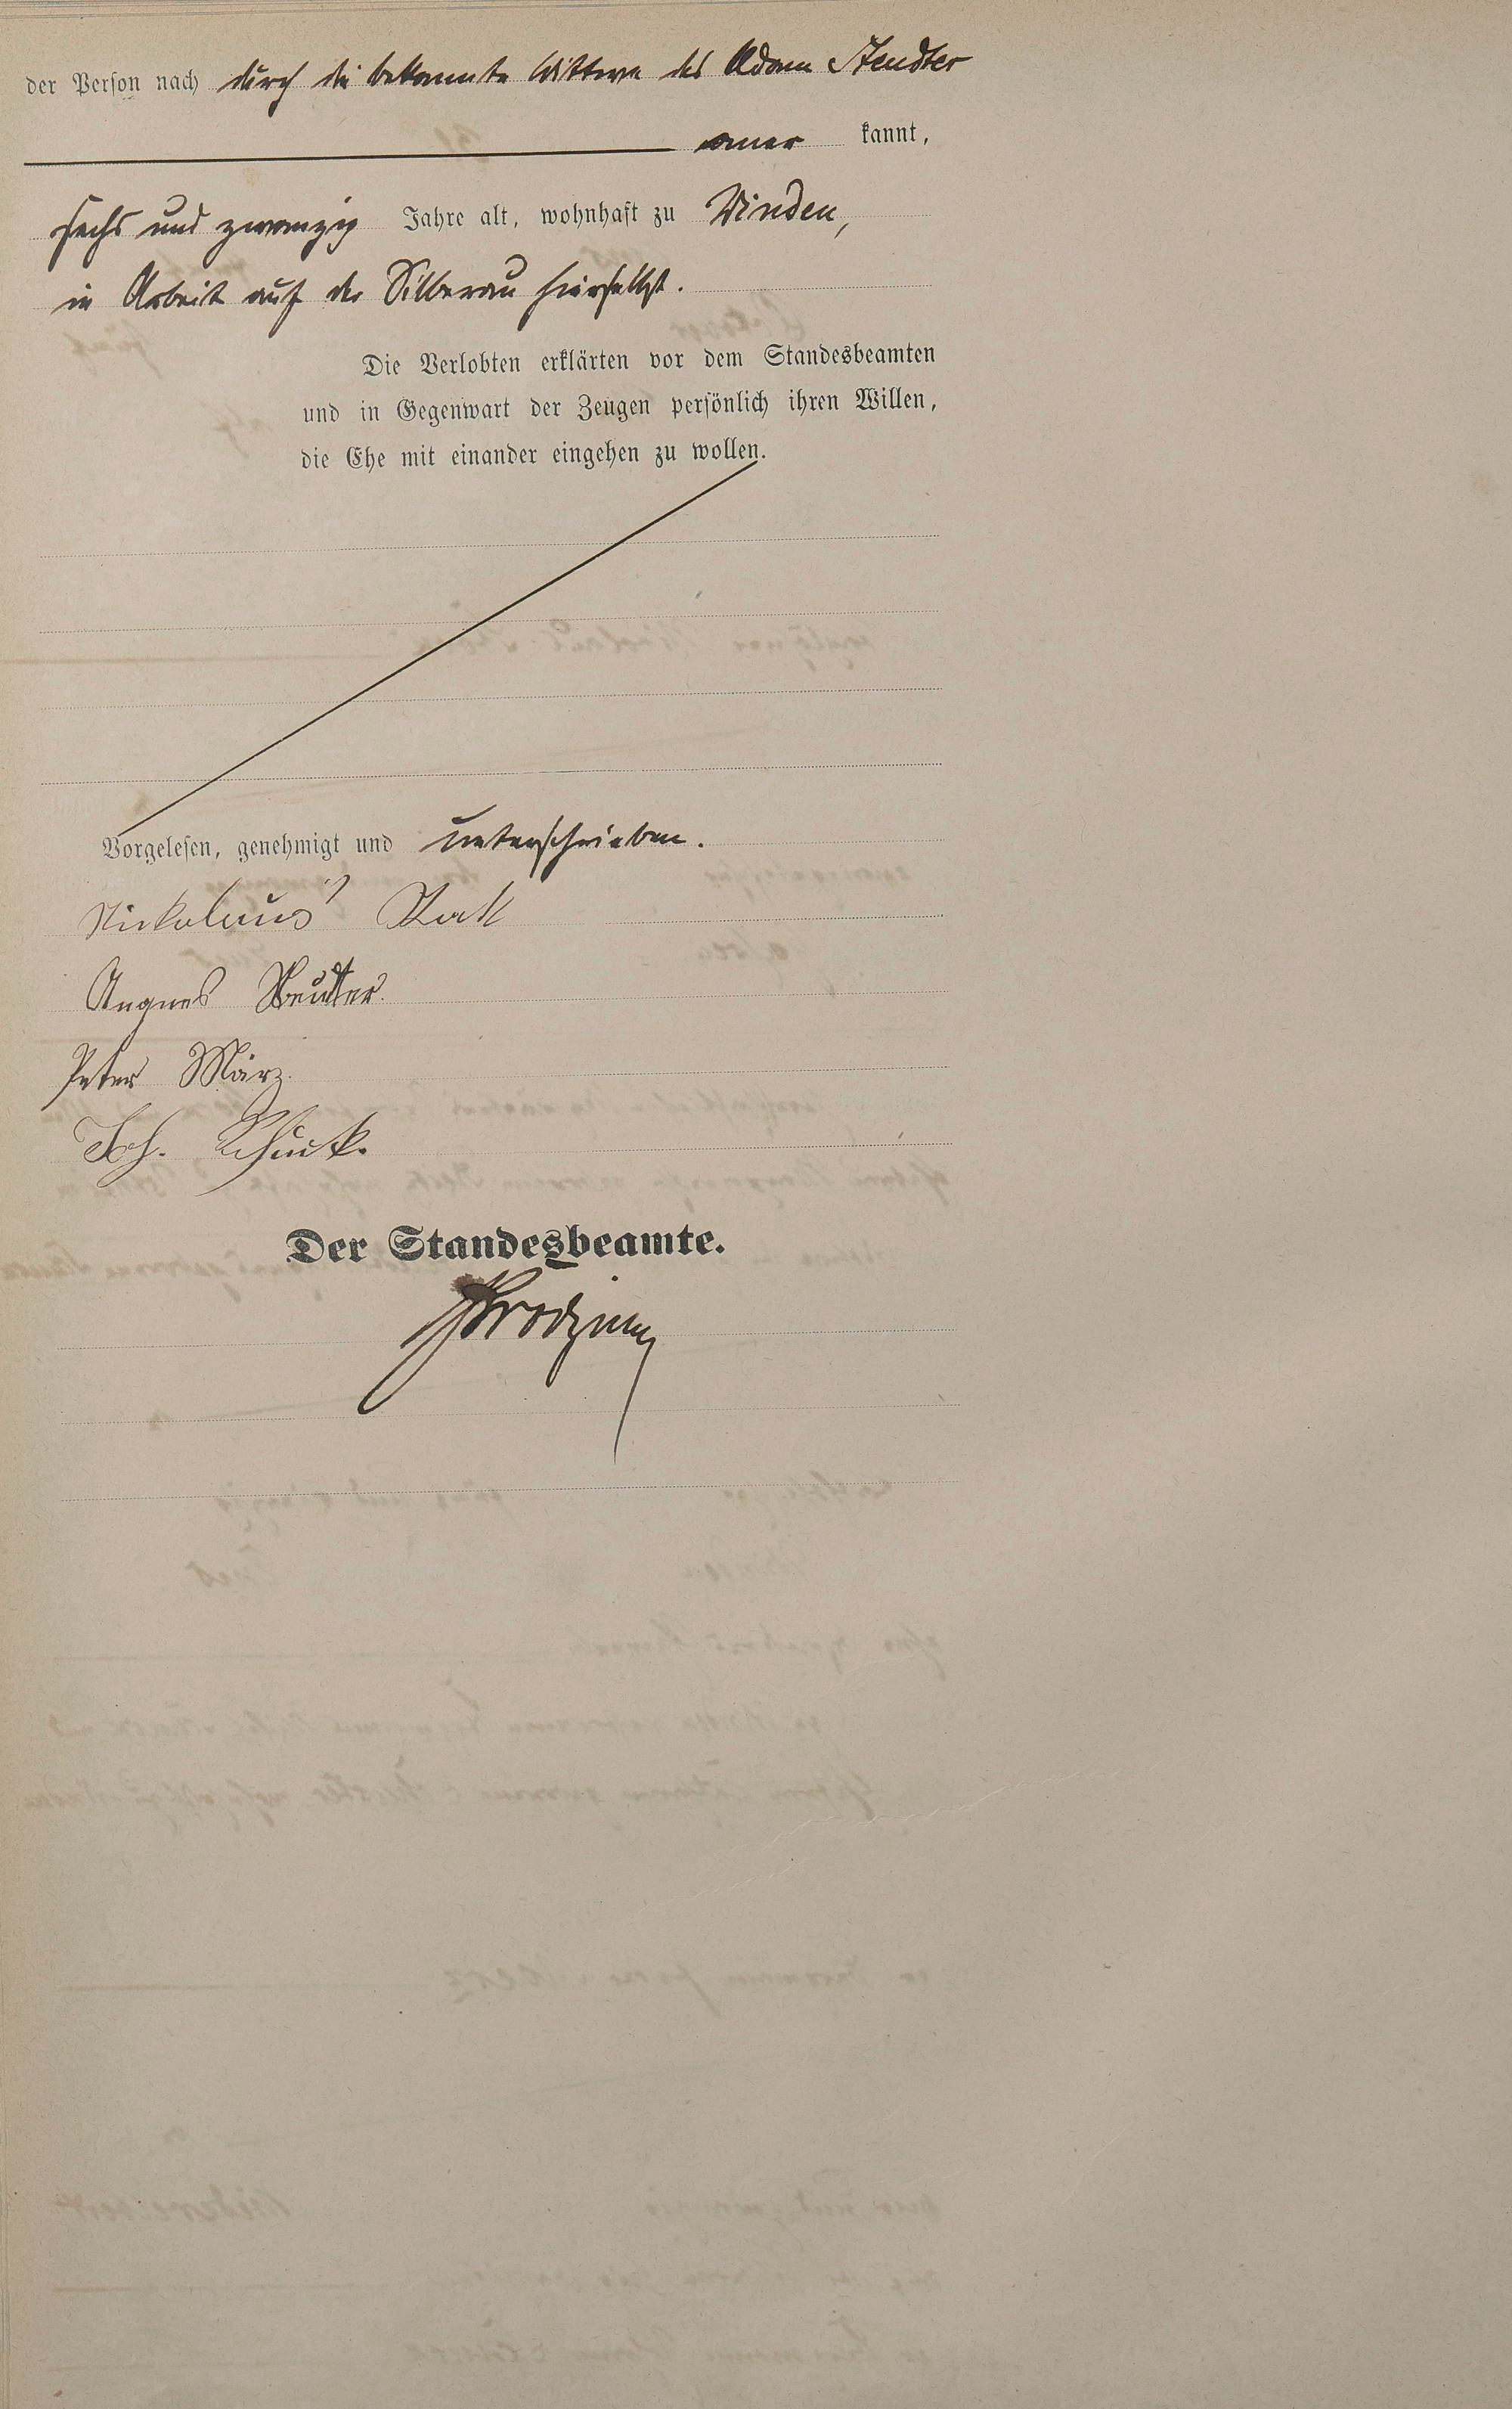 der Person nach durch die bekannte Wittwe des Adam Stendter
aner kannt,
sechs und zwanzig Jahre alt, wohnhaft zu Winden,
in Arbeit auf der Silberau hierselbst.
Die Verlobten erklärten vor dem Standesbeamten
und in Gegenwart der Zeugen persönlich ihren Willen,
die Ehe mit einander eingehen zu wollen.
Vorgelesen, genehmigt und unterschrieben.
Nickolaus
Angnes
Peter März.
Joh. Schuck.
Der Standesbeamte.